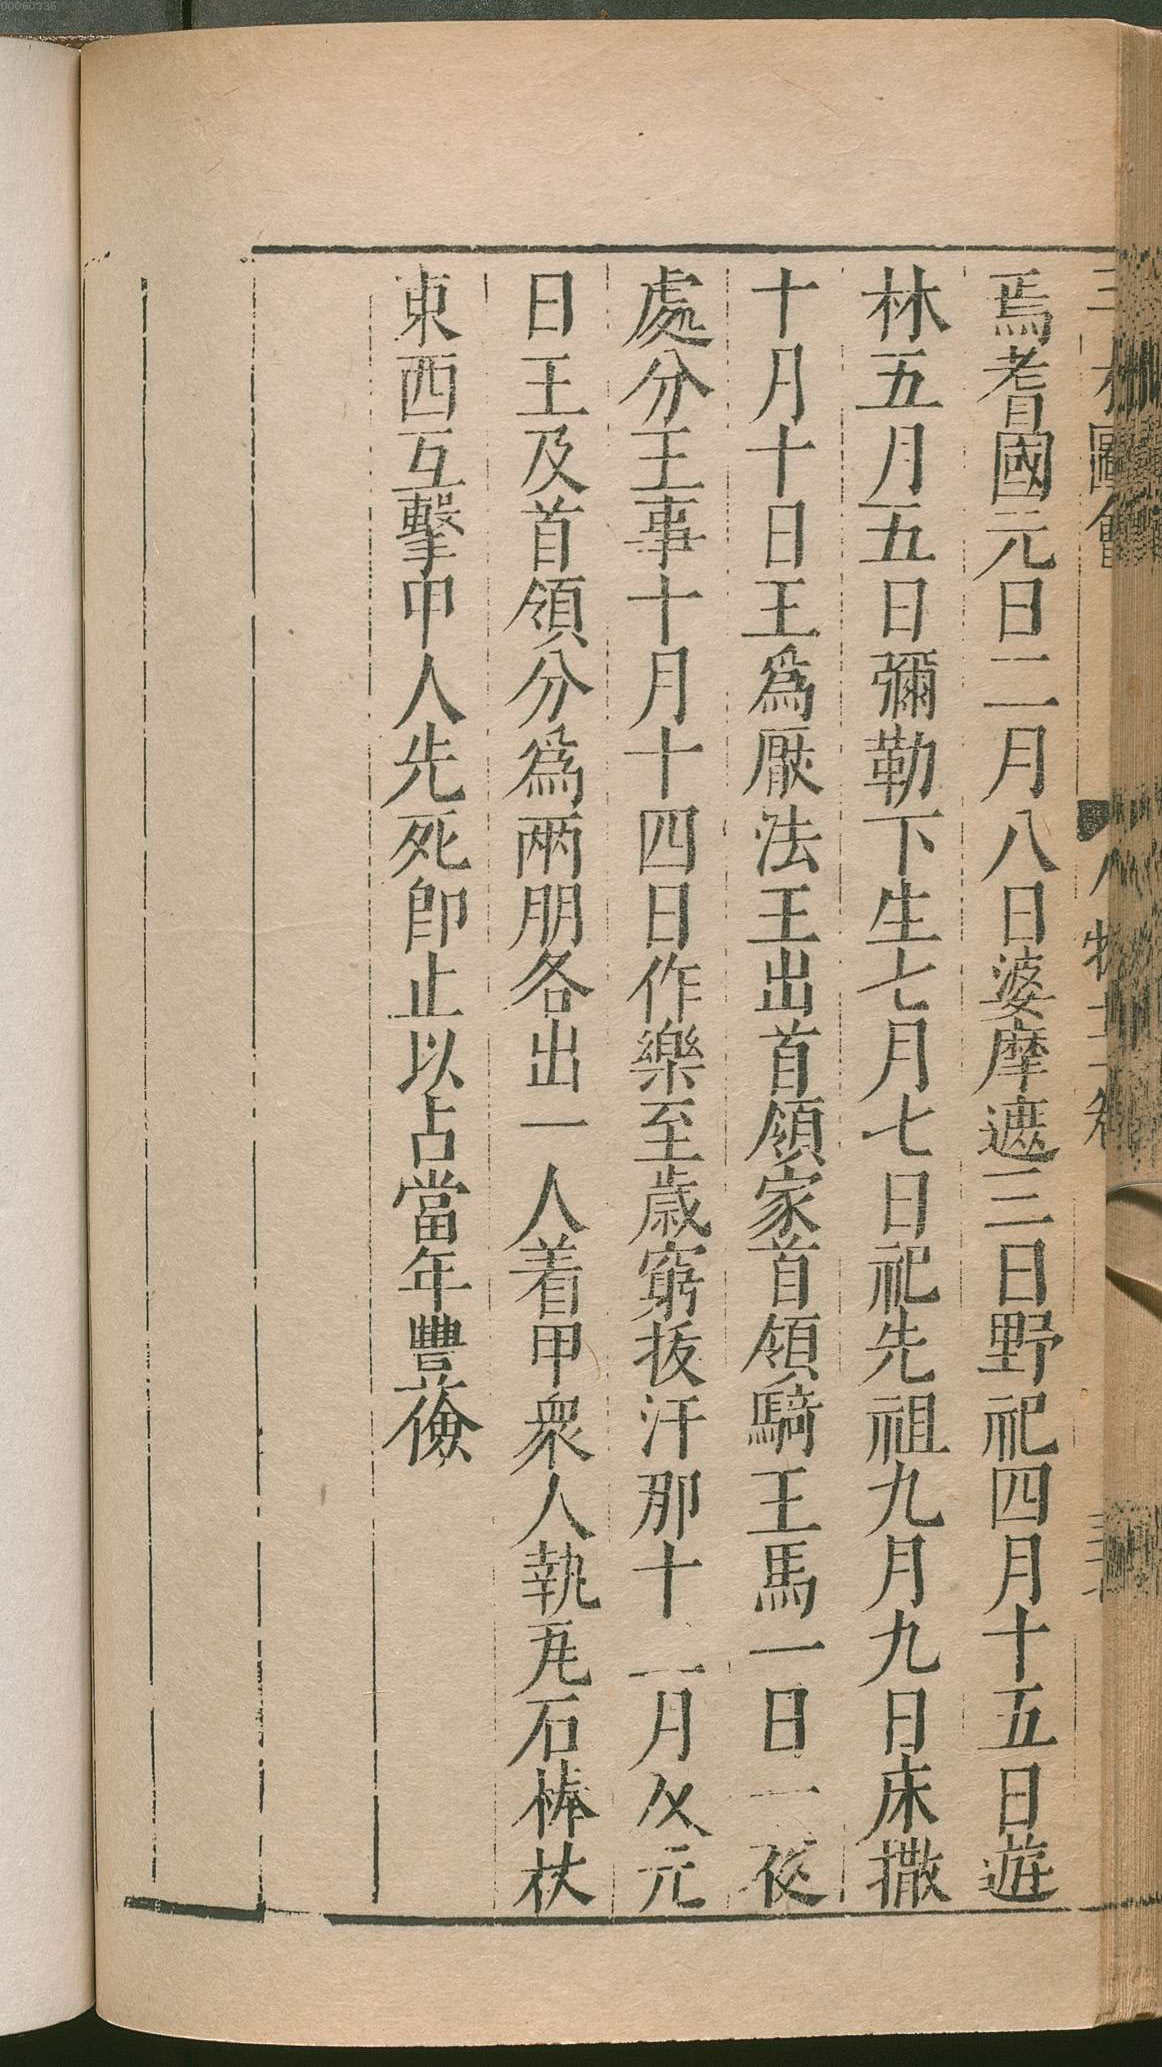 00060336
三才圖會 人物十三卷
焉耆國元日二月八日婆摩遮三日野祀四月十五日遊
林五月五日彌勒下生七月七日祀先祖九月九日床撒
十月十日王爲厭法王出首領家首領騎王馬一日一夜
處分王事十月十四日作樂至歲窮拔汗那十一月及元
日王及首領分爲兩朋各出一人着甲衆人執瓦石棒杖
東西互擊甲人先死即止以占當年豐儉